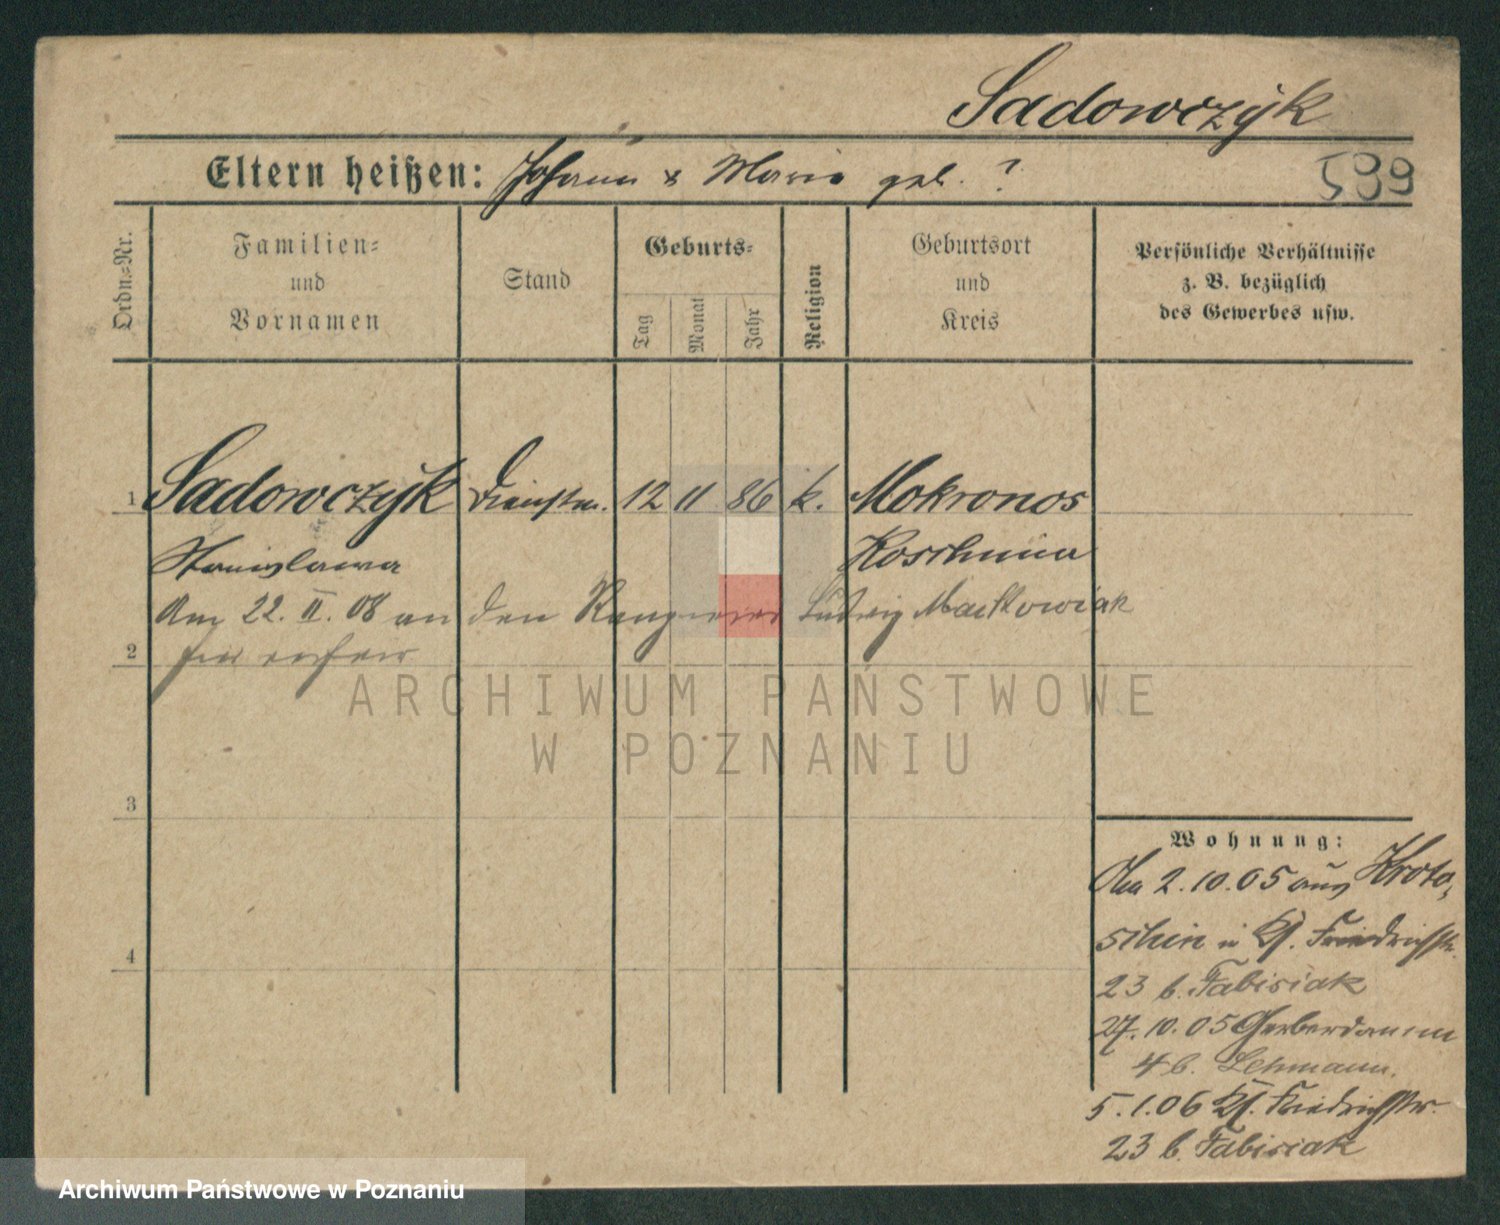 Sadowczyk
Eltern heißen: Johann & Maria geb. ?
599
Ordn.=Nr.
Familien=
und
Vornamen
Stand
Geburts=
Tag
Monat
Jahr
Religion
Geburtsort
und
Kreis
Persönliche Verhältnisse
z. B. bezüglich
des Gewerbes usw.
1 Sadowczyk Dienstm. 12 11 86 k. Mokronos
Stanislawa Koschmin
Am 22. II. 08 an den Rangierer Ludwig Maćkowiak
2
ARCHIWUM PAŃSTWOWE
W POZNANIU
3
4
Wohnung:
Am 2.10.05 aus Kroto-
schin in Kl. Friedrichstr.
23 b. Fabisiak
27.10.05 Gerberdamm
4 b. Lehmann.
5.1.06 Kl. Friedrichstr.
23 b. Fabisiak
Archiwum Państwowe w Poznaniu